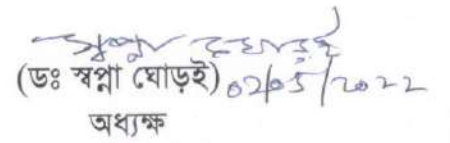 স্বপ্না ঘোড়ই
(ডঃ স্বপ্না ঘোড়ই) 02/05/2022
অধ্যক্ষ